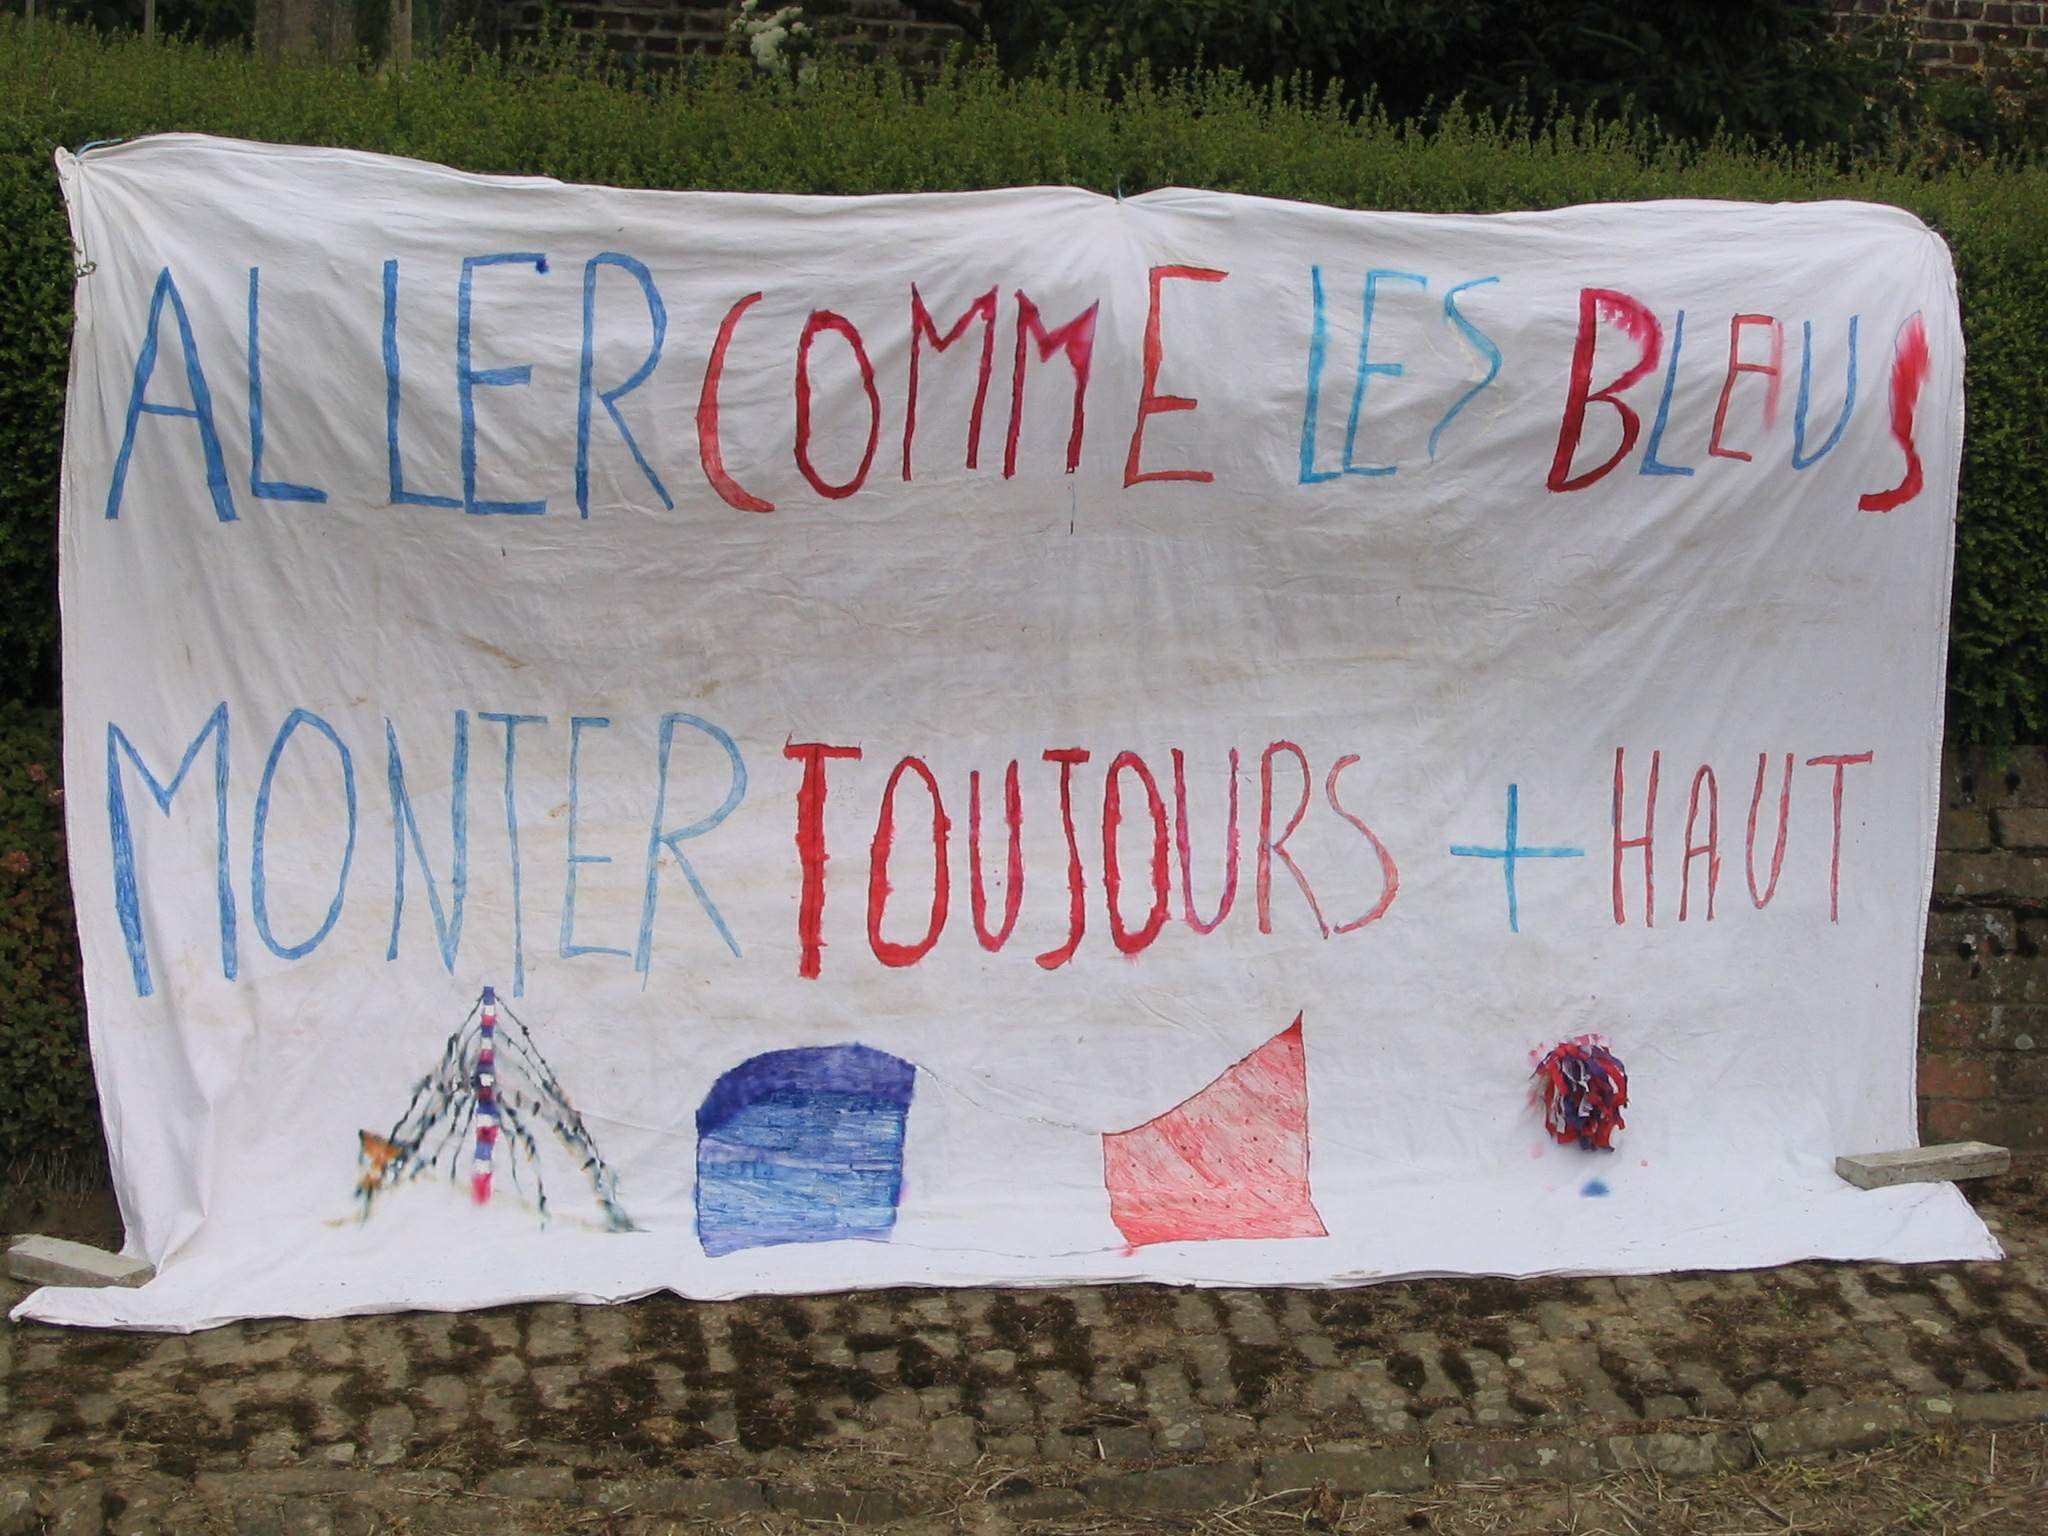 ALLER COMME LES BLEUS
MONTER TOUJOURS + HAUT